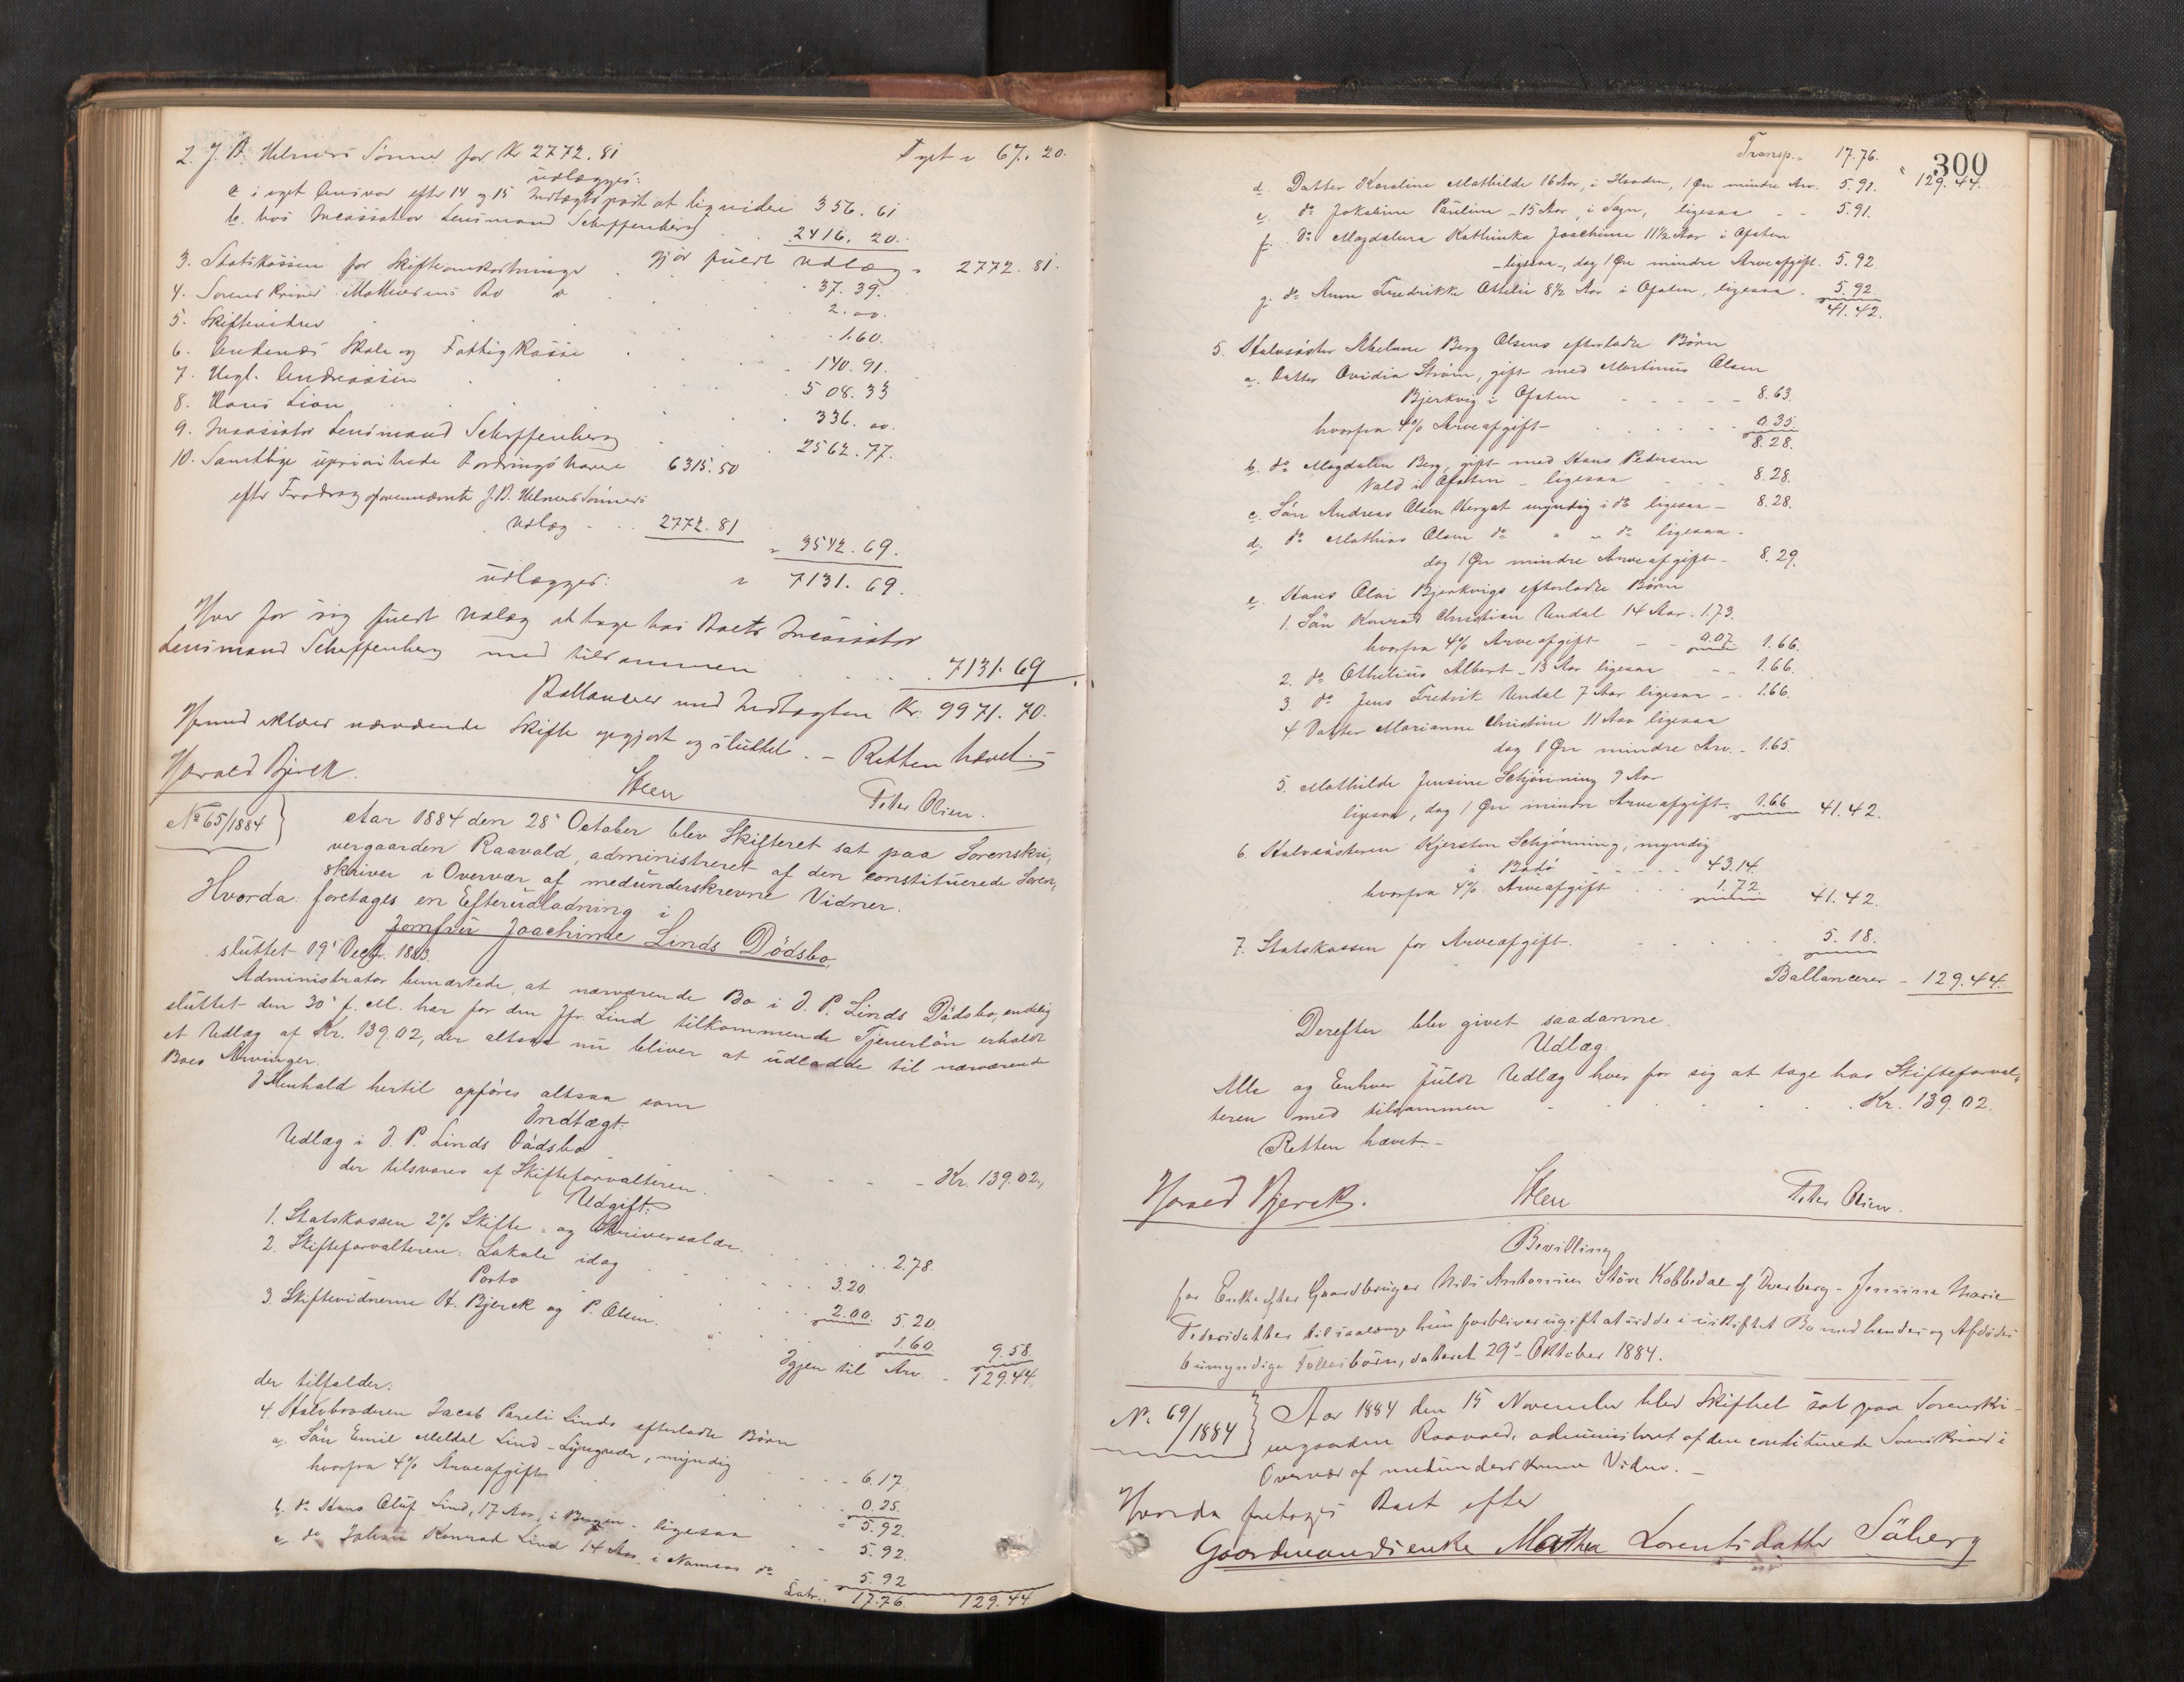 2. J. D. Helmers Sønner for Kr 2772.81 Tyet " 67.20.
udlægges:
a i eget Ansvar efter 14 og 15 Indtægtspost at liquidere 356.61
b. hos Incassator Lensmand Scheffenberg 2416.20.
gjør fuldt Udlæg " 2772.81.
3. Statskassen for Skifteomkostninger 37.39.
4. Sorenskriver Mathiesens Bo 2.00.
5. Skiftevidner 1.60.
6. Andenæs Skole og Fattigkasse 140.91.
7. Hegl. Andreassen 508.33
8. Hans Lian 336.00.
9. Incassator Lensmand Scheffenberg 2562.77.
10. Samtlige upriviterede Fordringshavere 6315.50
efter Fradrag af ovennævnte J. D. Helmers Sønners
Udlæg 2772.81
" 3542.69.
udlægges: " 7131.69.
Hver for sig fuldt Udlæg at tage hos Boets Incassator
Lensmand Scheffenberg med tilsammen 7131.69
Ballancer med Indtægten Kr. 9971.70.
Hermed erklæres nærværende Skifte opgjort og sluttet. – Retten hævet. –
Harald Bjerck. Steen Peter Olsen.
No 65/1884
Aar 1884 den 28de October blev Skifteret sat paa Sorenskri-
vergaarden Raavold, administreret af den constituerede Soren-
skriver i Overvær af medunderskrevne Vidner.
Hvorda foretages en Efterudlodning i
Jomfru Joachimme Linds Dødsbo,
sluttet 19' Decbr. 1883.
Administrator bemærkede, at nærværende Bo i J. P. Linds Dødsbo, endelig
sluttet den 30' f. M. har for den Jfr. Lind tilkommende Tjenerløn erholdt
et Udlæg af Kr. 139.02, der altsaa nu bliver at udlodde til nærværende
Boes Arvinger.
I Henhold hertil opføres altsaa som
Indtægt:
Udlæg i J. P. Linds Dødsbo
der tilsvares af Skifteforvalteren. - - - Kr. 139.02,
Udgift:
1. Statskassen 2% Skifte- og Skriversalær 2.78.
2. Skifteforvalteren: Lokale idag 3.20
Porto 2.00. 5.20.
3. Skiftevidnerne H. Bjerck og P. Olsen. 1.60. 9.58.
Igjen til Arv - 129.44.
der tilfalder:
4. Halvbroderen Jacob Pareli Linds efterladte Børn
a. Søn Emil Meldal Lind - Lyngvær, myndig - - - 6.17.
hvorfra 4% Arveafgift 0.25.
" 5.92.
b. do Hans Oluf Lind, 17 Aar, i Bergen - ligesaa 5.92.
c. do Johan Konrad Lind 14 Aar i Namsos do 5.92
Latr.. 17.76. 129.44
300
Transp." 17.76. " 129.44.
d. Datter Karoline Mathilde 16 Aar, i Hadsel, 1 Øre mindre Arv. 5.91.
e. do Jokabine Pauline - 15 Aar, i Sogn, ligesaa - - 5.91.
f. do Magdalena Kathinka Joachime 11½ Aar i Ofoten
- ligesaa -, dog 1 Øre mindre Arveafgift. 5.92
g. do Anne Fredrikke Ottilie 8½ Aar i Ofoten, ligesaa. 5.92.
41.42.
5. Halvsøster Abelone Berg Olsens efterladte Børn
a. Datter Ovidia Strøm, gift med Martinus Olsen
Bjerkvig i Ofoten - - - - - 8.63.
hvorfra 4% Arveafgift - 0.35
8.28.
b. do Magdalen Berg, gift med Hans Pedersen
Vold i Ofoten - ligesaa - - - 8.28.
c. Søn Andreas Olsen Hergot myndig i do ligesaa - 8.28.
d. do Mathias Olsen do " " do ligesaa -
dog 1 Øre mindre Arveafgift - 8.29.
e. Hans Olai Bjerkvigs efterladte Børn
1. Søn Konrad Christian Undal 14 Aar - 1.73.
hvorfra 4% Arveafgift - - 0.07 1.66.
2. do Othelius Albert - 13 Aar ligesaa - - 1.66.
3. do Jens Fredrik Undal 7 Aar ligesaa - - 1.66.
4. Datter Marianne Christine 11 Aar ligesaa
dog 1 Øre mindre Arv. - 1.65.
5. Mathilde Jensine Schjønning 9 Aar
ligesaa, dog 1 Øre mindre Arveafgift. 1.66 41.42.
6. Halvsøsteren Kjersten Schjønning, myndig
i Bodø - - - - - 43.14.
hvorfra 4% Arveafgift 1.72. 41.42.
7. Statskassen for Arveafgift. 5.18.
Ballancerer - 129.44.
Derefter blev givet saadanne
Udlæg.
Alle og Enhver fuldt Udlæg hver for sig at tage hos Skifteforval-
teren med tilsammen Kr. 139.02.
Retten hævet. -
Harald Bjerck. Steen Peter Olsen.
Bevilling
for Enke efter Gaardbruger Nils Antonius Støve Kobbedal af Dverberg - Jensine Marie
Pedersdatter til saalænge hun forbliver ugift at sidde i uskiftet Bo med hendes og Afdødes
6 umyndige Fællesbørn, dateret 29de Oktober 1884.
No 69/1884
Aar 1884 den 15 November blev Skifteret sat paa Sorenskri-
vergaarden Raavold, administreret af den constituerede Sorenskriver i
Overvær af medunderskrevne Vidner. -
Hvorda foretages Boet efter
Gaardmandsenke Mathea Lorentsdatter Søberg